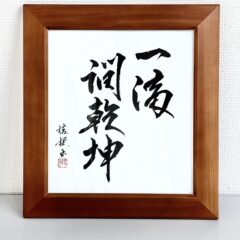 一滴
潤乾坤